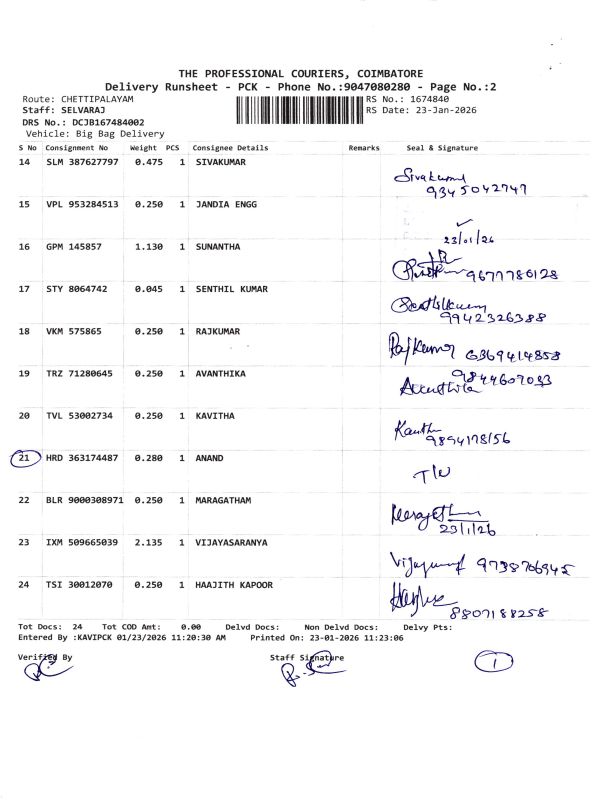 THE PROFESSIONAL COURIERS, COIMBATORE
Delivery Runsheet - PCK - Phone No.:9047080280 - Page No.:2
Route: CHETTIPALAYAM RS No.: 1674840
Staff: SELVARAJ RS Date: 23-Jan-2026
DRS No.: DCJB167484002
Vehicle: Big Bag Delivery
S No Consignment No Weight PCS Consignee Details Remarks Seal & Signature
14 SLM 387627797 0.475 1 SIVAKUMAR
Sivakumar
9345042747
15 VPL 953284513 0.250 1 JANDIA ENGG
23/01/26
16 GPM 145857 1.130 1 SUNANTHA
9677786128
17 STY 8064742 0.045 1 SENTHIL KUMAR
Senthilkumar
9942326388
18 VKM 575865 0.250 1 RAJKUMAR
Rajkumar 6369414858
19 TRZ 71280645 0.250 1 AVANTHIKA
9844607033
20 TVL 53002734 0.250 1 KAVITHA
9894178156
21 HRD 363174487 0.280 1 ANAND
22 BLR 9000308971 0.250 1 MARAGATHAM
23/1/26
23 IXM 509665039 2.135 1 VIJAYASARANYA
9738706945
24 TSI 30012070 0.250 1 HAAJITH KAPOOR
8807188258
Tot Docs: 24 Tot COD Amt: 0.00 Delvd Docs: Non Delvd Docs: Delvy Pts:
Entered By :KAVIPCK 01/23/2026 11:20:30 AM Printed On: 23-01-2026 11:23:06
Verified By Staff Signature
1